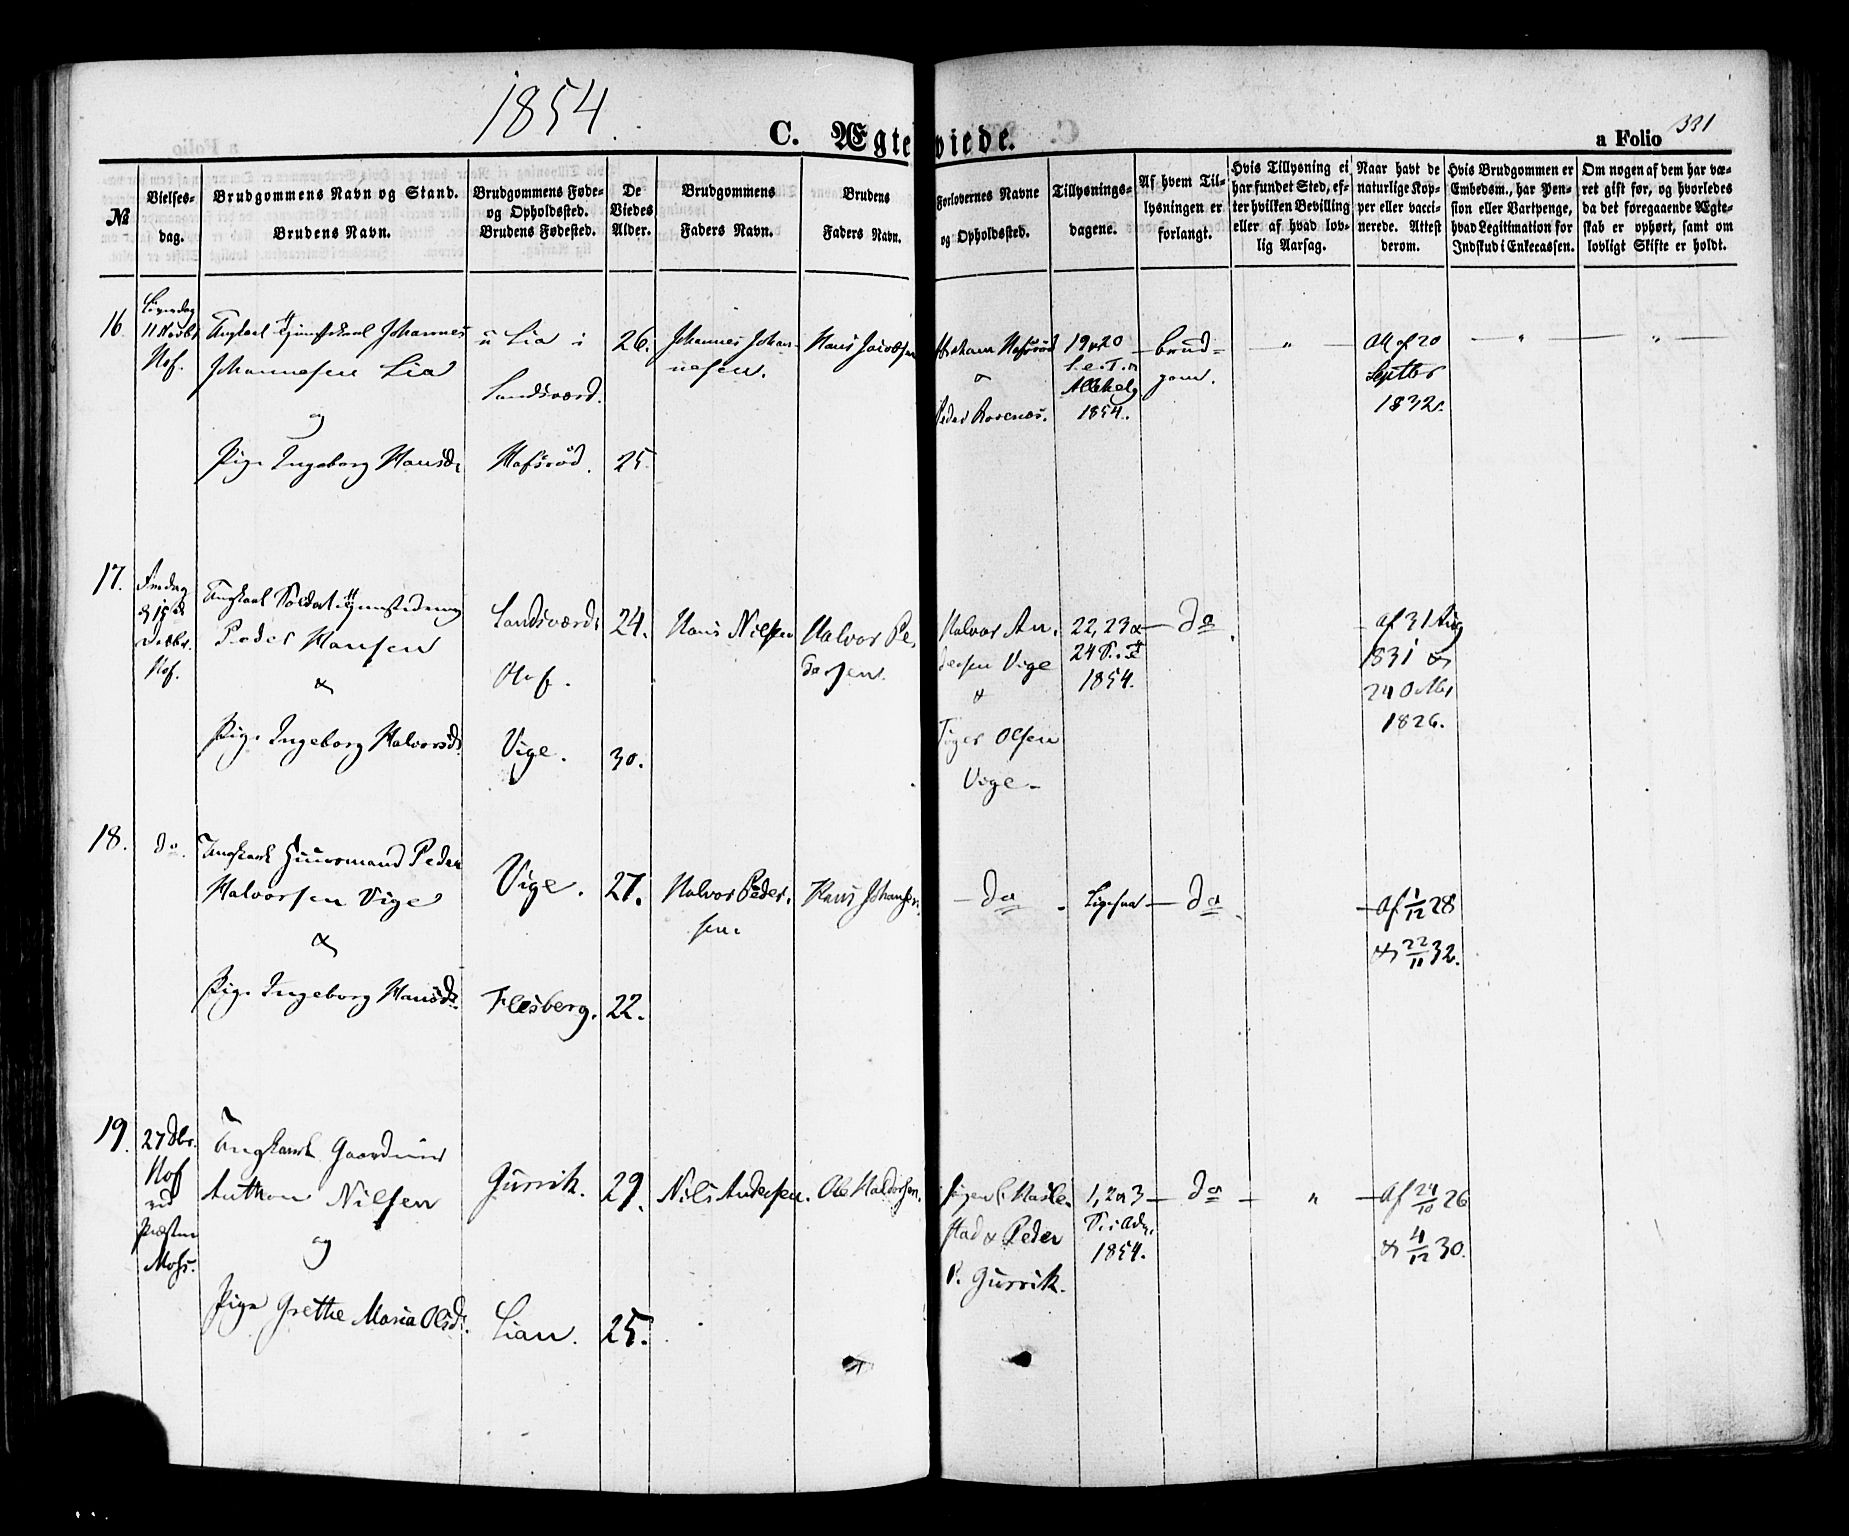 1854.
C. Ægteviede.
a Folio 331
№
Vielses-
dag.
Brudgommens Navn og Stand.
Brudens Navn.
Brudgommens Føde-
og Opholdssted.
Brudens Fødested.
De
Viedes
Alder.
Brudgommens
Faders Navn.
Brudens
Faders Navn.
Forlovernes Navne
og Opholdssted.
Tillysnings-
dagene.
Af hvem Til-
lysningen er
forlangt.
Hvis Tillysning ei
har fundet Sted, ef-
ter hvilken Bevilling
eller af hvad lov-
lig Aarsag.
Naar havt de
naturlige Kop-
per eller vacci-
nerede. Attest
derom.
Hvis Brudgommen er
Embedsm., har Pen-
sion eller Vartpenge,
hvad Legitimation for
Indskud i Enkecassen.
Om nogen af dem har væ-
ret gift før, og hvorledes
da det foregaaende Ægte-
skab er ophørt, samt om
lovligt Skifte er holdt.
16.
Løverdag
11 Novbr
Hof.
Ungkarl Johannes
Johannesen Lia
og
Pige Ingeborg Hansd.
Lia i
Sandsværd.
Hofsrød.
26.
25.
Johannes Johan-
nesen.
Hans Jacobsen
Abraham Hofsrød
Peder Rosenæs.
19 20
S. e. T. &
Allehelg
1854.
Brud-
gom.
"
Af 20
Septbr
1832.
"
"
17.
Fredag
d 15de
Decbr.
Hof.
Ungkarl Soldat
Peder Hansen
&
Pige Ingeborg Halvorsd.
Sandsværd
Hof.
Vige.
24.
30.
Hans Nilsen
Halvor Pe-
dersen.
Halvor An-
dersen Vige
&
Olsen
Vige.
22, 23 &
24
1854.
do
Af 31 Aug
1831 &
24 Octbr
1826.
18.
do.
Ungkarl Huusmand Peder
Halvorsen Vige
&
Pige Ingeborg Hansd.
Vige.
Flesberg.
27.
22.
Halvor Peder-
sen.
Hans Johansen.
do
Ligesaa
do
Af 1/12 28
& 22/11 32.
19.
27 Dbr.
Hof
ved
Præsten
Mohr.
Ungkarl Gaardmand
Anthon Nilsen
og
Pige Grethe Maria Olsd.
Gurrik.
Lian.
29.
25.
Nils Andersen.
Ole Haldorsen.
Hasle-
stad & Peder
P. Gurrik.
1, 2 & 3
S. i Adv.
1854.
do
"
Af 24/10 26
& 4/12 30.